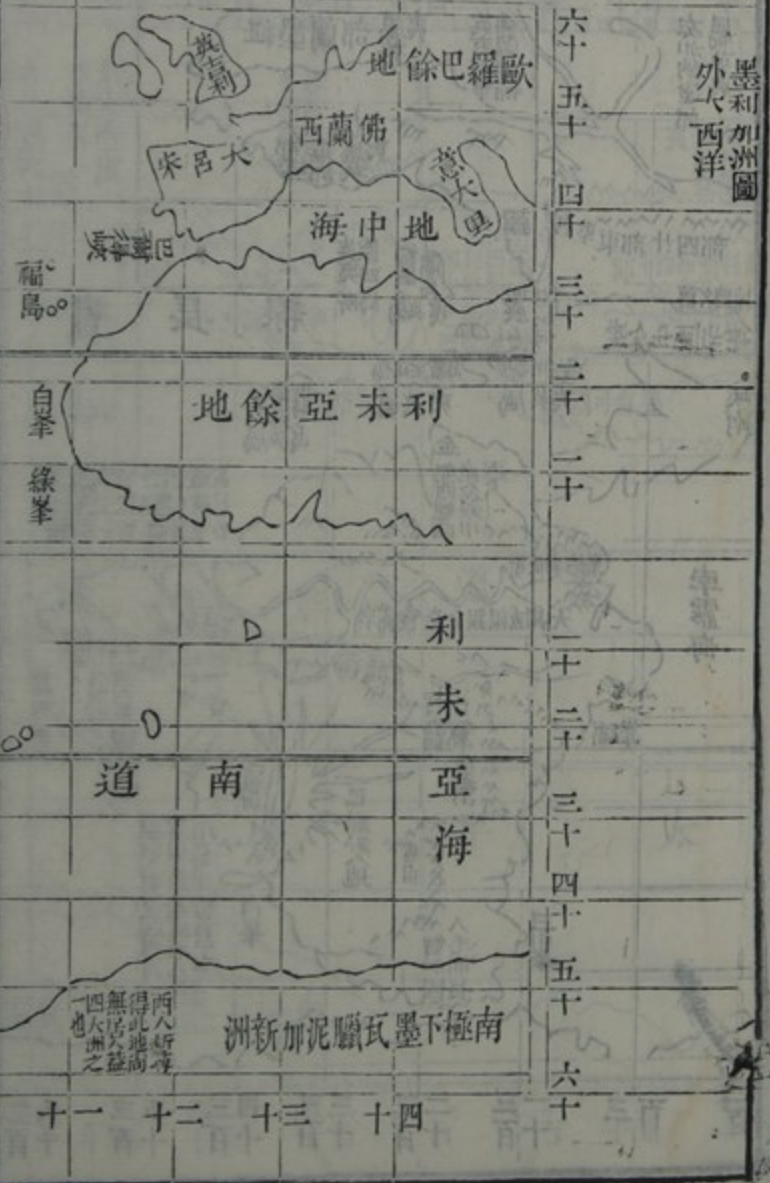 墨利加洲圖
外大西洋
六十
五十
四十
三十
二十
一十
一十
二十
三十
四十
五十
六十
英吉利
歐羅巴餘地
佛蘭西
大呂宋
意大里
地中海
福島
利未亞餘地
白峯
綠峯
利未亞海
南道
南極下墨瓦臘泥加新洲
西人新尋
得此地尚
無居人益
四大洲之
一也
四十
三十
二十
一十